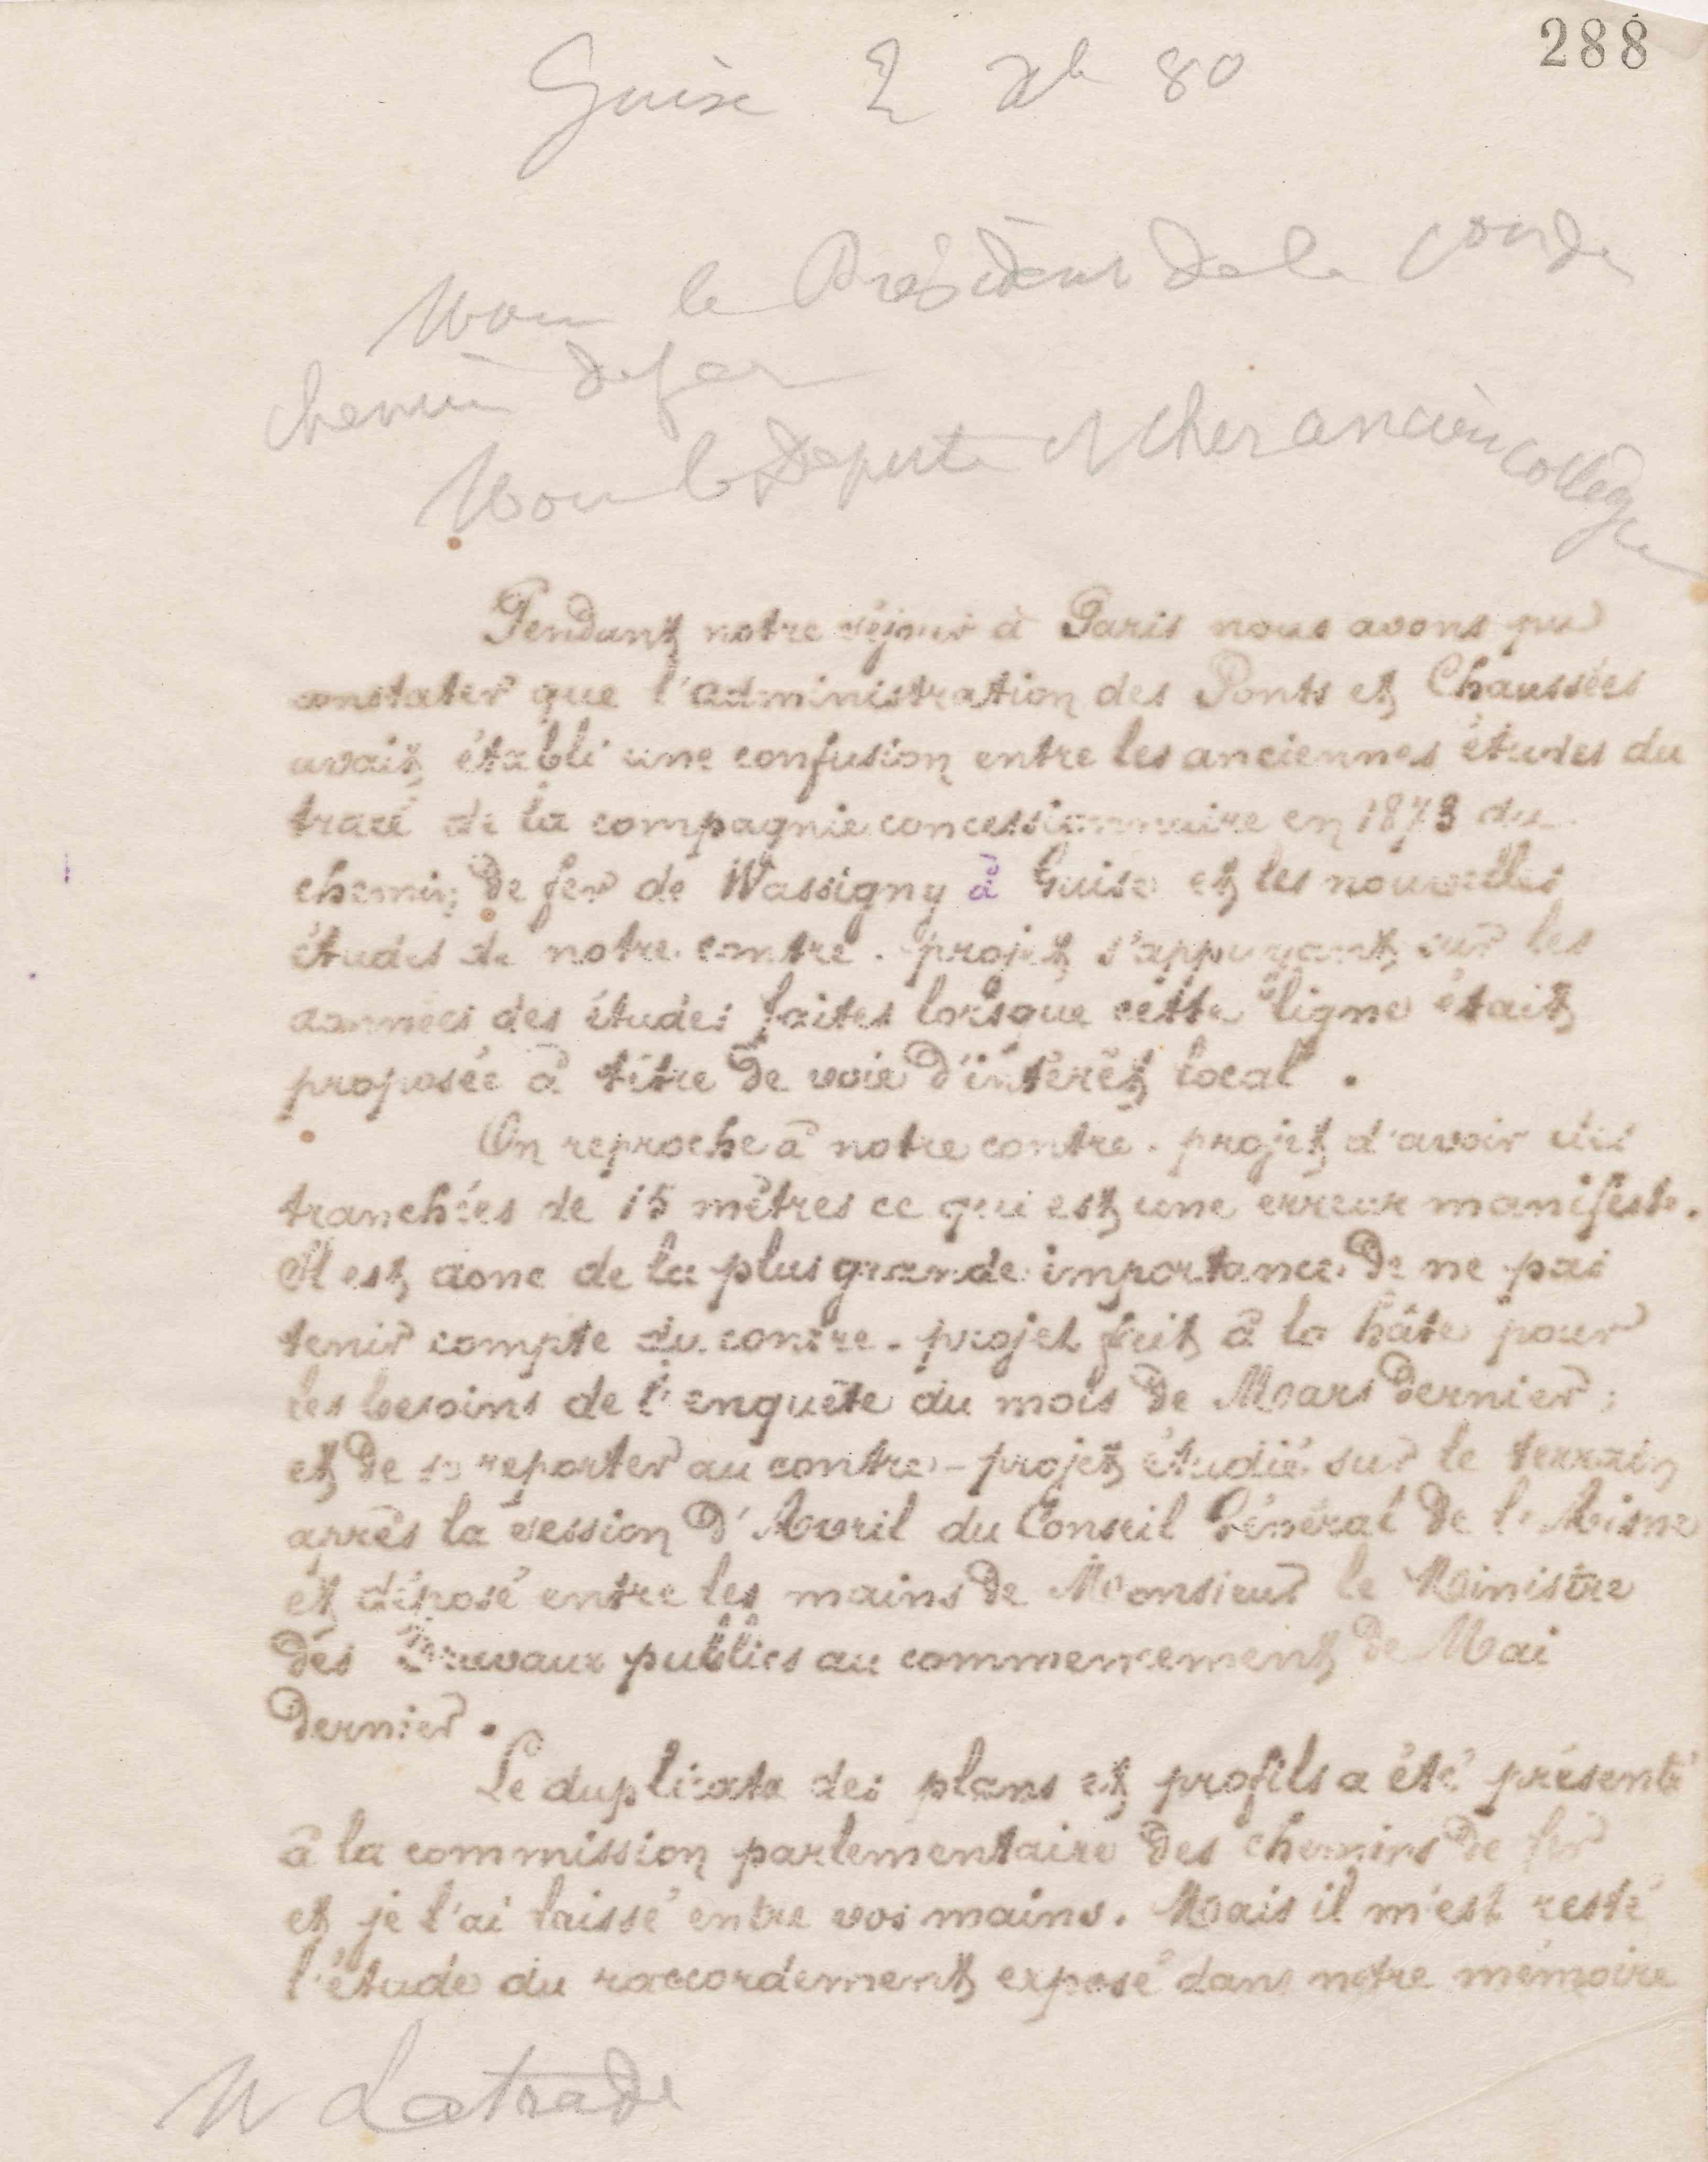 288
Guise 2 Xbre 80
Mon le Président de la Con des
chemin de fer
Mon le Deputé et cher ancien collègue
Pendant notre séjour à Paris nous avons pu
constater que l'administration des Ponts et Chaussées
avait établi une confusion entre les anciennes études du
tracé de la compagnie concessionnaire en 1873 du
chemin de fer de Wassigny à Guise et les nouvelles
études de notre contre-projet s'appuyant sur les
données des études faites lorsque cette ligne était
proposée à titre de voie d'intérêt local.
On reproche à notre contre-projet d'avoir des
tranchées de 15 mètres ce qui est une erreur manifeste.
Il est donc de la plus grande importance de ne pas
tenir compte du contre-projet fait à la hâte pour
les besoins de l'enquête du mois de Mars dernier;
et de se reporter au contre-projet étudié sur le terrain
après la session d'Avril du Conseil Général de l'Aisne
et déposé entre les mains de Monsieur le Ministre
des Travaux publics au commencement de Mai
dernier.
Le duplicata des plans et profils a été présenté
à la commission parlementaire des chemins de fer
et je l'ai laissé entre vos mains. Mais il m'est resté
l'étude du raccordement exposé dans notre mémoire
M Latrade